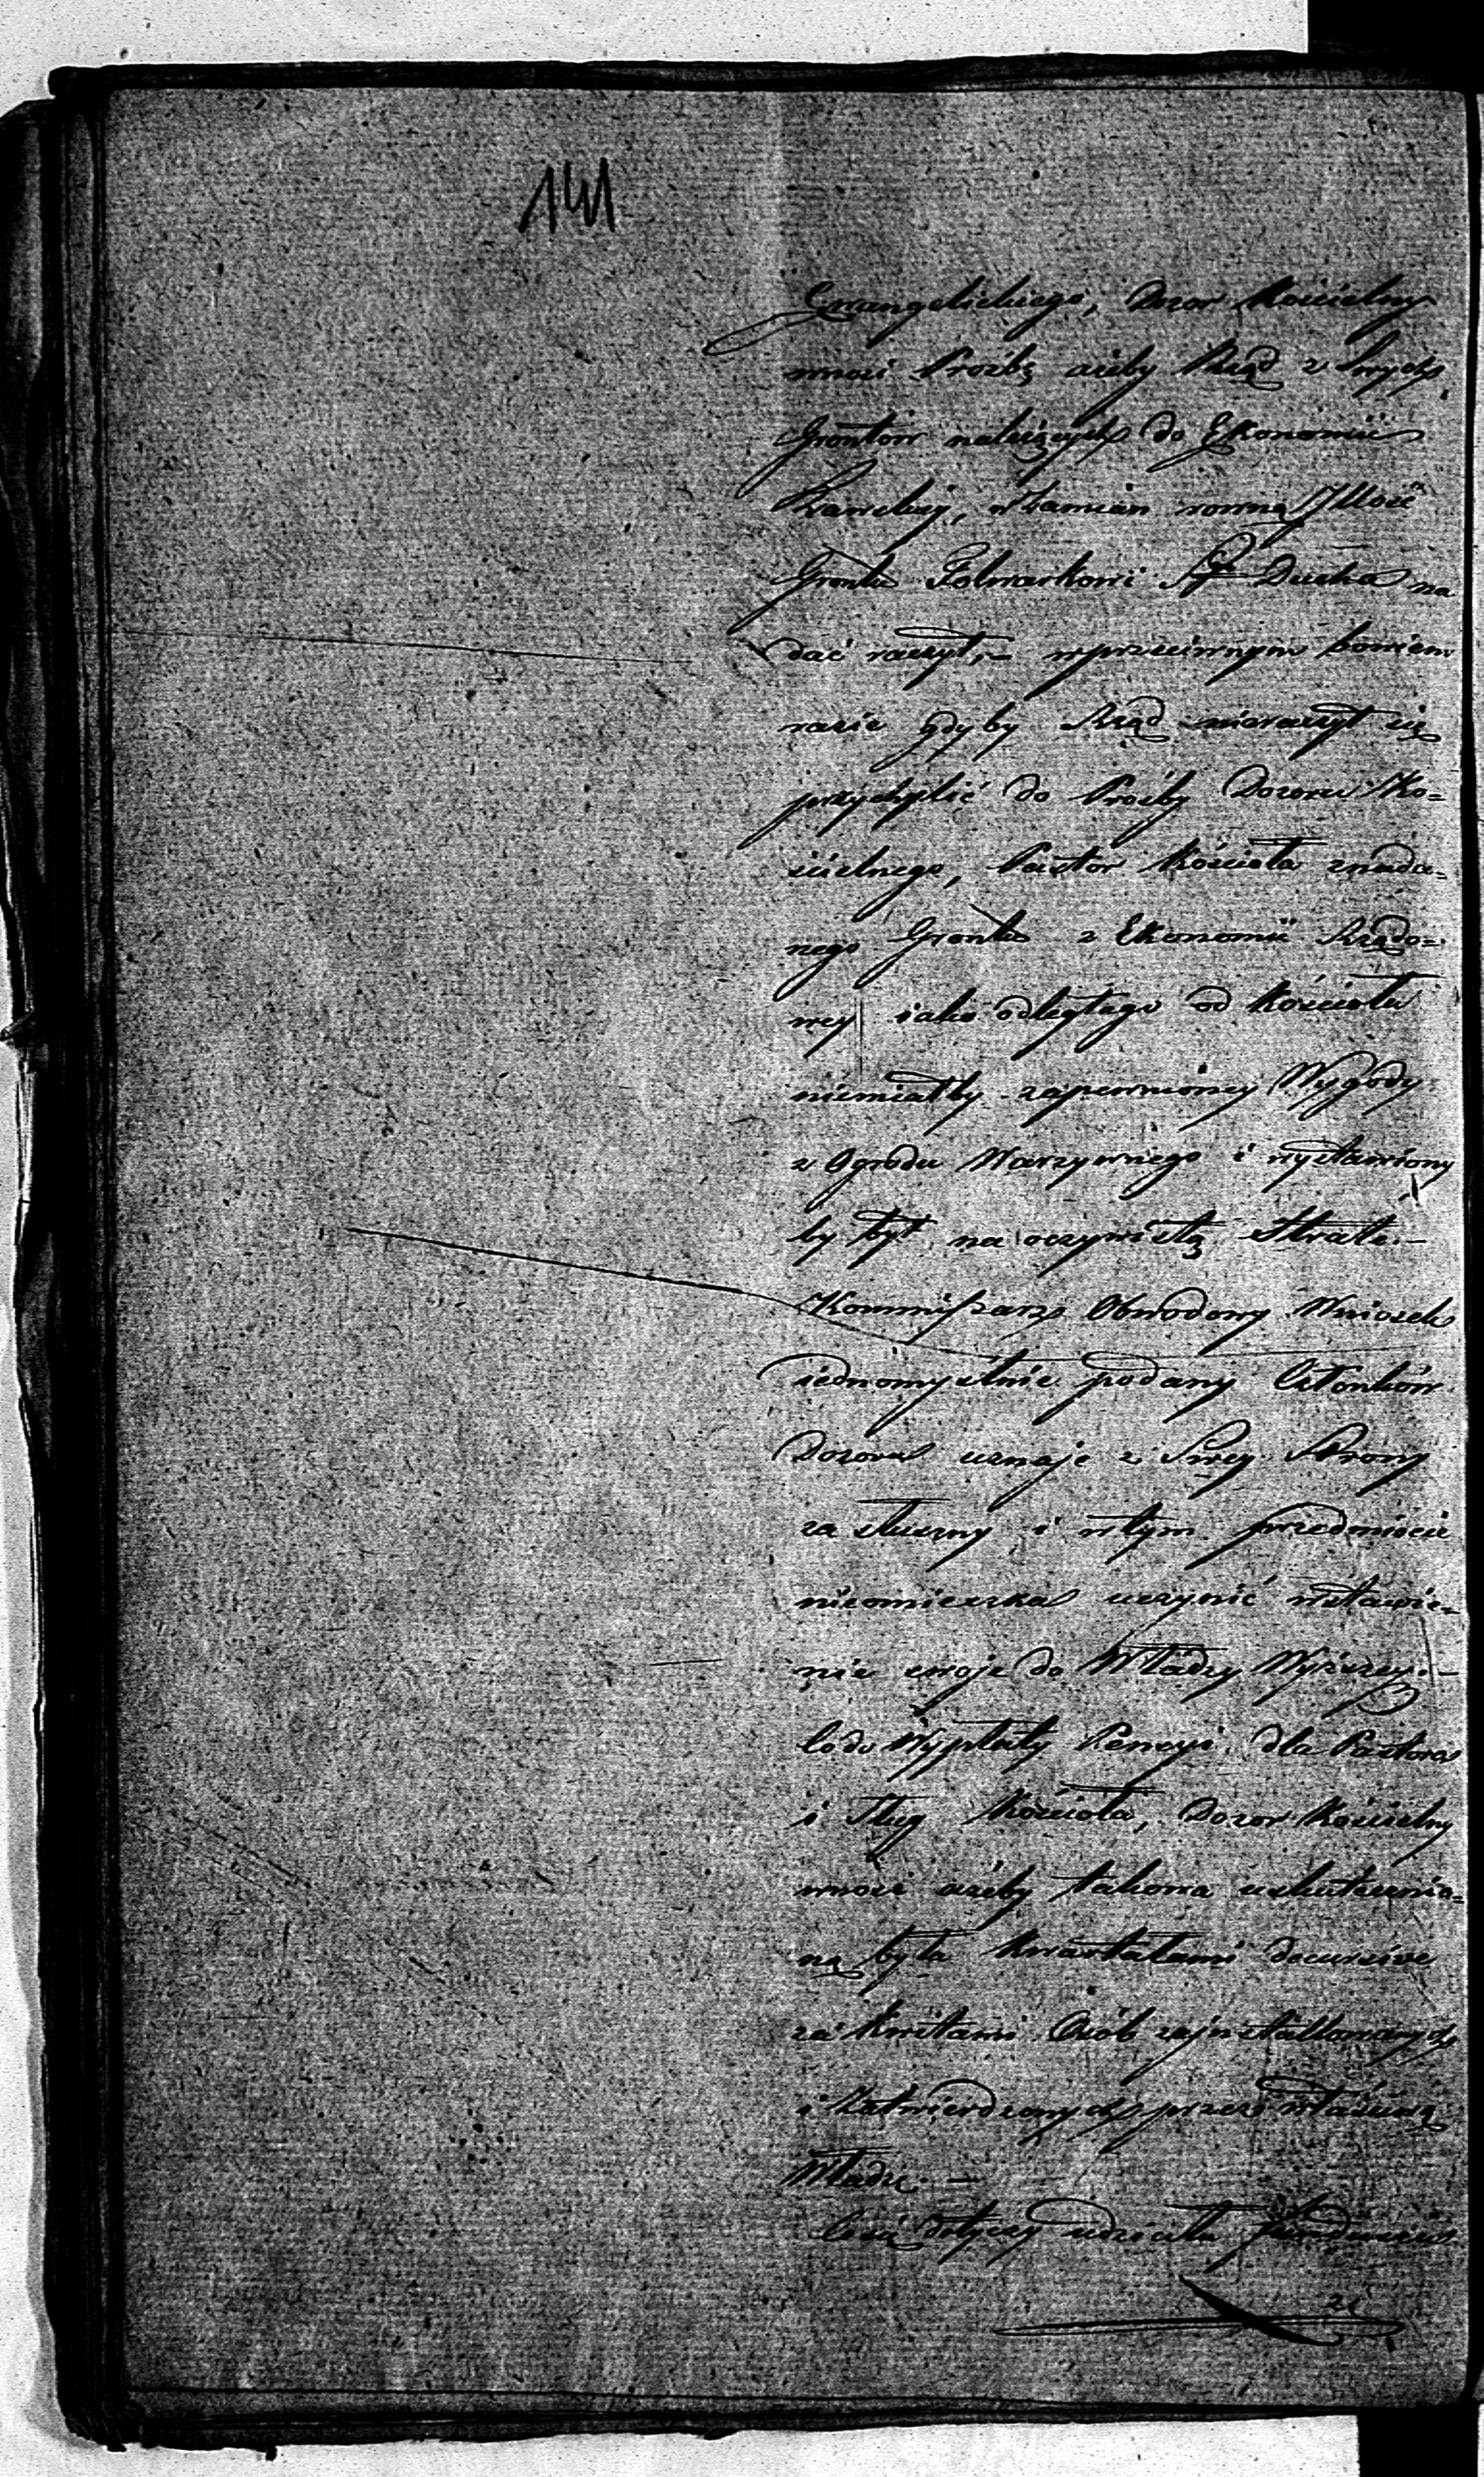 141
Ewangelickiego, Dozor Kościelny
wnosi Prośbę ażeby Rząd z Swych
Grontow należących do Ekonomii
Rawskiey, w Zamian rowną Jllość
Grontu Folwarkowi Sgo Ducha na
dać raczył, – wprzeciwnym bowiem
razie gdyby Rząd nieraczył się
przychylić do Prośby Dozoru Ko=
ścielnego, Pastor Kościoła znada=
nego Grontu z Ekonomii Rządo=
wey iako odległego od Kościoła
niemiałby zapewnioney Wygody
z Ogrodu Warzywnego i wystawiony
by był na oczywistą Stratę. –
Kommissarz Obwodowy Wniosek
iednomyślnie podany Członków
Dozoru uznaje z Swey Strony
za słuszny i wtym przedmiocie
nieomieszka uczynić wstawie=
nie swoje do Władzy Wyższey. –
Co do Wypłaty Pensyi dla Pastora
i Sług Kościoła, Dozor Kościelny
wnosi ażeby takowa uskutecznia=
ną była Kwartałami decursive
za Kwitami Osób zajnstallowanych
i Zatwierdzonych przez właściwą
Władzę. –
Cosię dotyczy udziału Funduszu